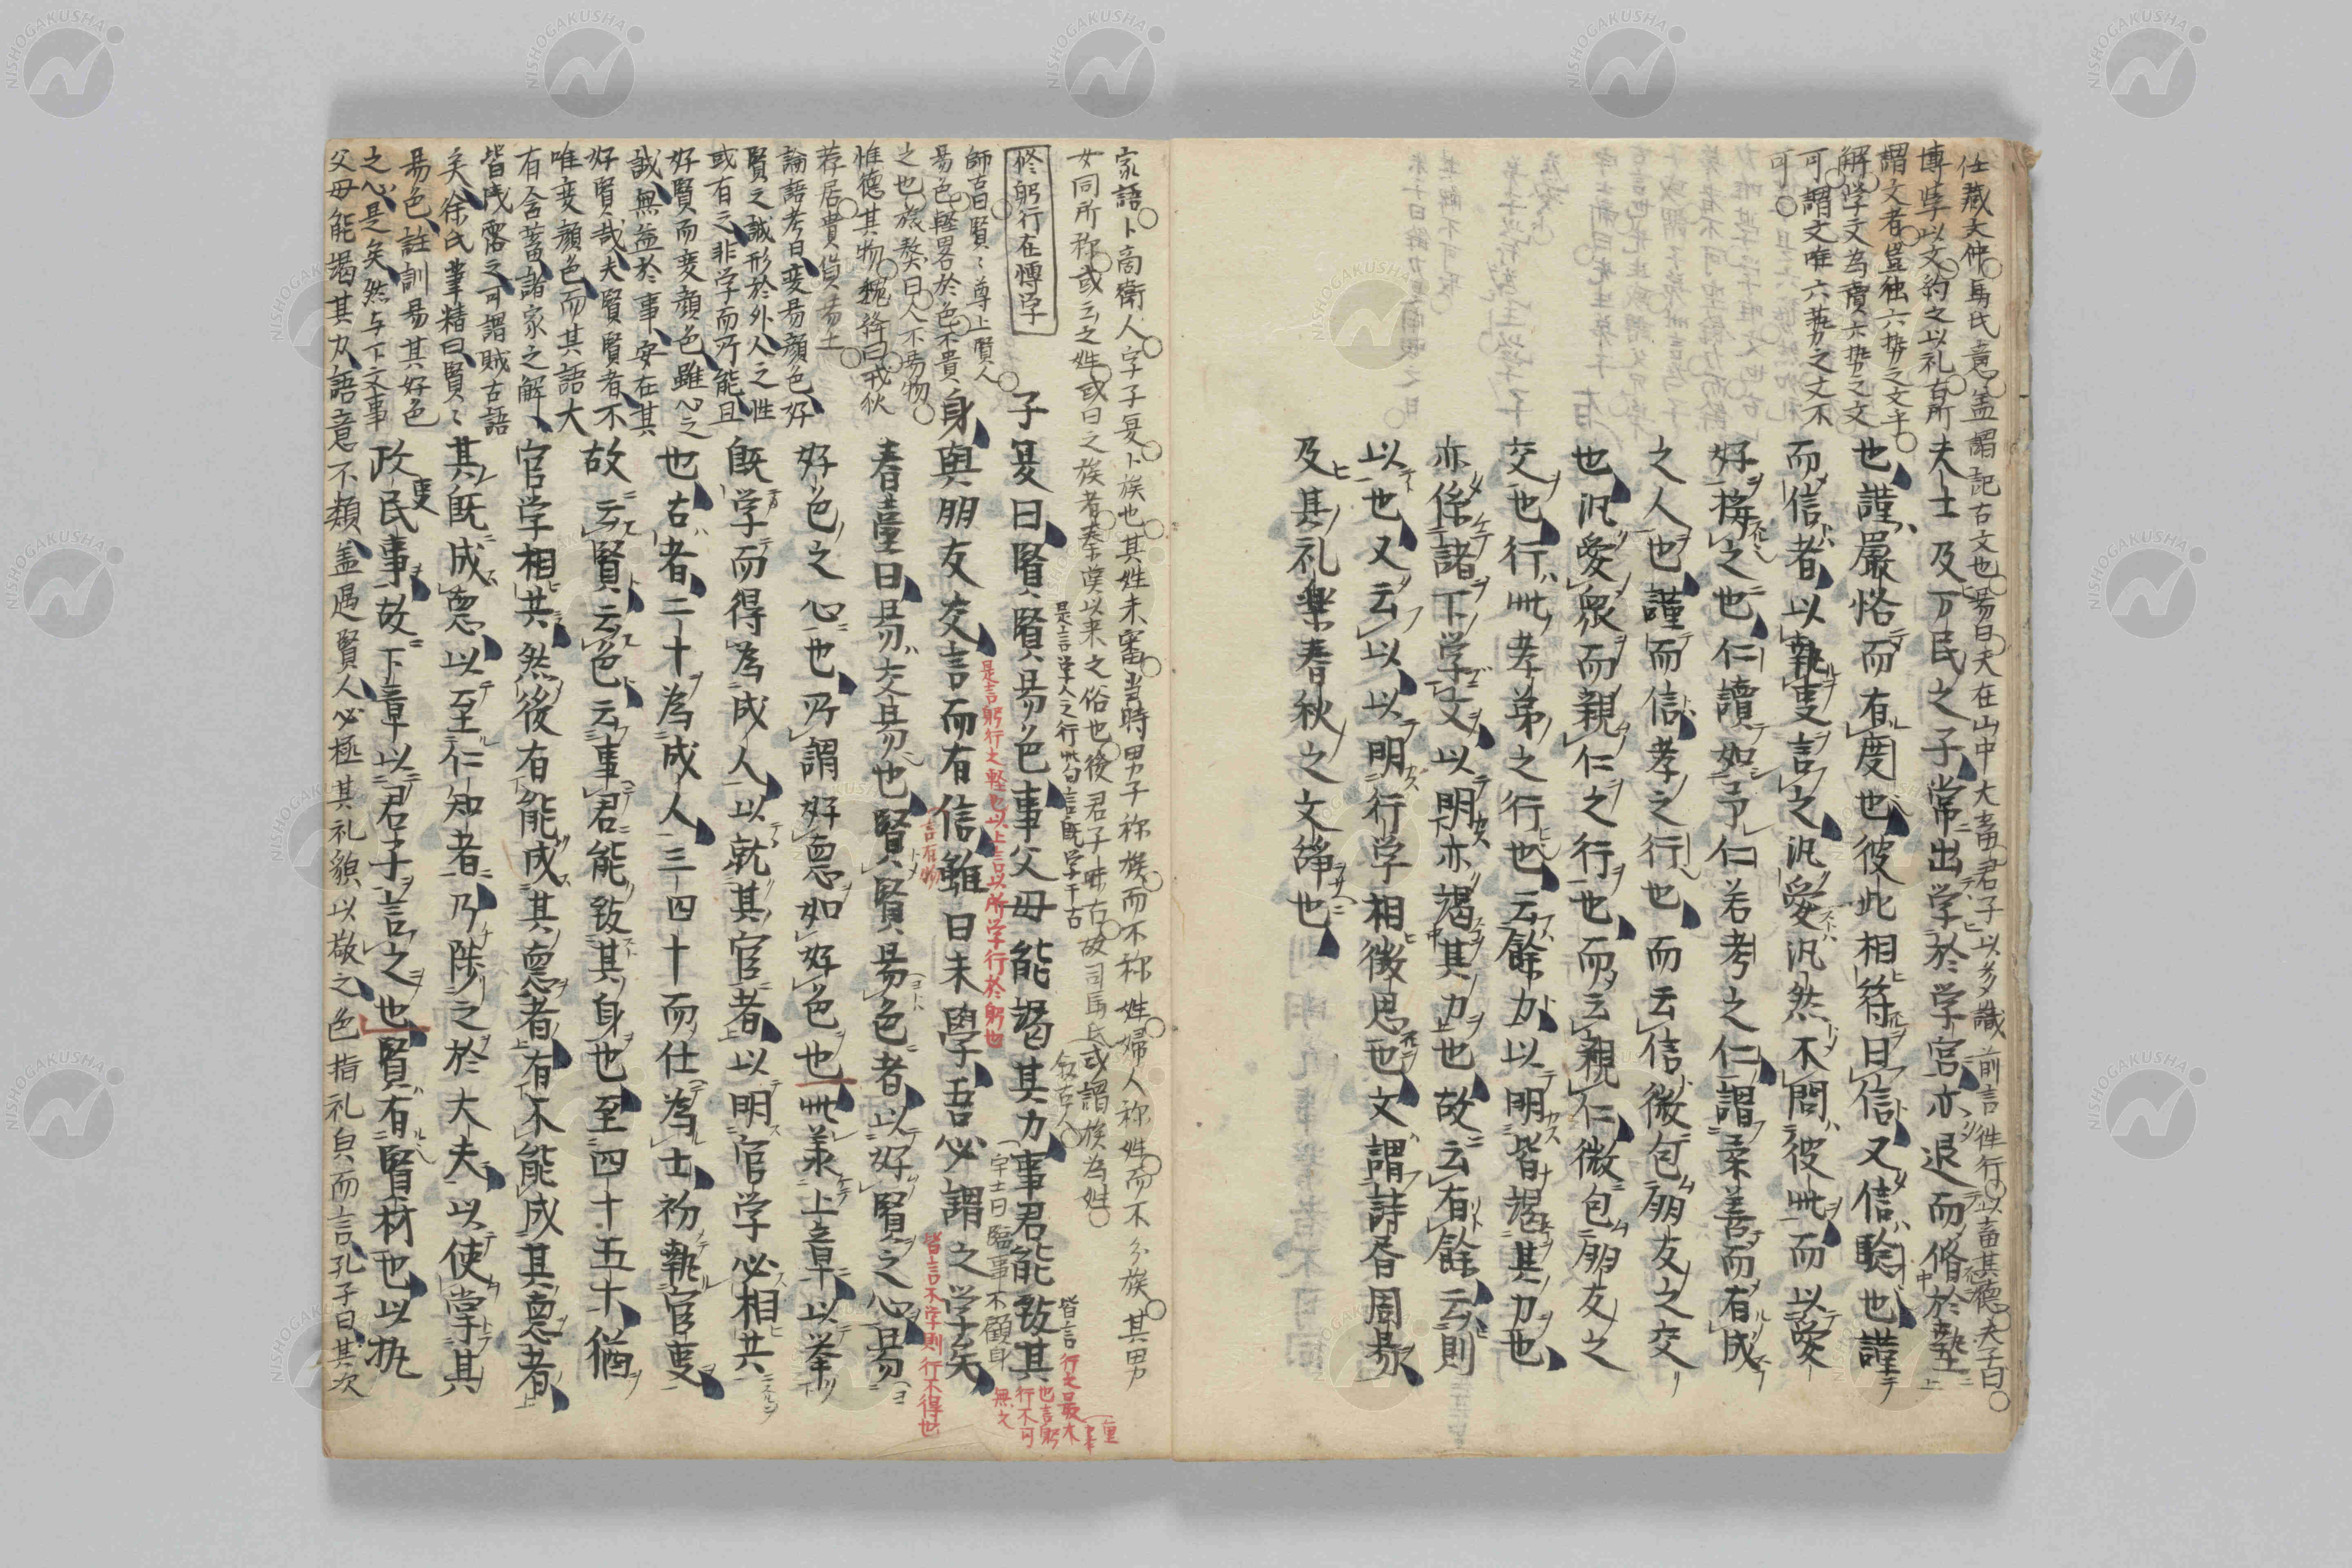 仕蔵矣仲馬氏意盖謂記古文也昜曰天在山中大畜君子以多識前言徃行以畜其徳夫子曰
博学以文約之以礼古所
謂文者豈独六埶之文乎
解学文為讀六埶之文
可謂文唯六埶之文不
可
夫士及万民之子常出学於学宮亦退而脩於塾
也謹嚴恪而有度也彼此相符曰信又信驗也謹
而信者以執事言之汎愛汎然不問彼此而以愛
好接之也仁讀如字仁若考之仁謂柔善而有成
之人也謹而信孝之行也而云信微包朋友之交
也汎愛衆而親仁之行也而云親仁微包朋友之
交也行此孝弟之行也云餘力以明皆竭其力也
亦係諸下学文以明亦竭其力也故云有餘云則
以也又云以以明行学相徴思也文謂詩春周昜
及其礼樂春秋之文辞也
家語卜商衛人字子夏卜族也其姓未審当時男子称族而不称姓婦人称姓而不分族其男
女同所称或云之姓或曰之族者秦漢以来之俗也後君子昧古故司馬氏或謂族為姓
是言学人之行此勾言既学干古
叙古人
修躬行在博学
子夏曰賢賢昜色事父母能竭其力事君能致其
身與朋友交言而有信雖曰未學吾必謂之学矣
是言躬行之軽也以上言以所学行於躬也
言有物
宇士曰臨事不顧身
皆言行之最大
也言躬
行不可
無文
皆言不学則行不得也
春臺曰昜交昜也賢賢昜色者以好賢之心昜
好色之心也所謂好悳如好色也此羕上章以挙
既学而得為成人以就其官者以明官学必相共
也古者二十為成人三四十而仕為士初執官事
故云賢云色云事君能致其身也至四十五十猶
官学相共然後有能成其悳者有不能成其悳者
其既成悳以至仁知者乃陟之於大夫以使掌其
政民事故下章以君子言之也賢有賢材也以执
師古曰賢ヽ尊上賢人
昜色軽畧於色不貴
之也旅獒曰人不昜物
惟徳其物魏絳曰戎狄
荐居貴貨昜土
論語考曰変昜顔色好
賢之誠形於外人之性
或有之非学而所能且
好賢而変顔色雖心之
誠無益於事安在其
好賢哉夫賢賢者不
唯変顔色而其語大
有含蓄諸家之解
皆浅露之可謂賊古語
矣徐氏筆精曰賢ヽ
昜色註訓昜其好色
之心是矣然与下文事
父母能竭其力語意不類盖遇賢人必極其礼貌以敬之色指礼皃而言孔子曰其次